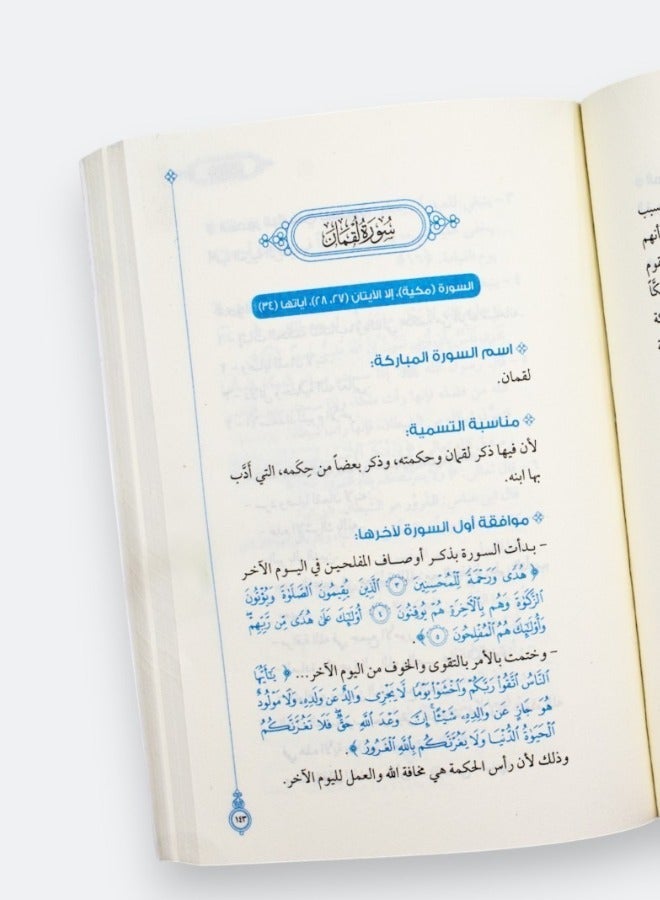 سُورَةُ لُقْمَان
السورة (مكية)، إلا الآيتان (٢٧، ٢٨)، آياتها (٣٤)
اسم السورة المباركة:
لقمان.
مناسبة التسمية:
لأن فيها ذكر لقمان وحكمته، وذكر بعضاً من حِكَمه، التي أدَّب
بها ابنه.
موافقة أول السورة لآخرها:
- بدأت السورة بذكر أوصاف المفلحين في اليوم الآخر
﴿ هُدًى وَرَحْمَةً لِّلْمُحْسِنِينَ ٣ الَّذِينَ يُقِيمُونَ الصَّلَاةَ وَيُؤْتُونَ
الزَّكَاةَ وَهُم بِالْآخِرَةِ هُمْ يُوقِنُونَ ٤ أُولَٰئِكَ عَلَىٰ هُدًى مِّن رَّبِّهِمْ
وَأُولَٰئِكَ هُمُ الْمُفْلِحُونَ ٥ ﴾.
- وختمت بالأمر بالتقوى والخوف من اليوم الآخر... ﴿ يَٰٓأَيُّهَا
النَّاسُ اتَّقُوا رَبَّكُمْ وَاخْشَوْا يَوْمًا لَّا يَجْزِي وَالِدٌ عَن وَلَدِهِ، وَلَا مَوْلُودٌ
هُوَ جَازٍ عَن وَالِدِهِ، شَيْئًا إِنَّ وَعْدَ اللَّهِ حَقٌّ فَلَا تَغُرَّنَّكُمُ
الْحَيَوٰةُ الدُّنْيَا وَلَا يَغُرَّنَّكُم بِاللَّهِ الْغَرُورُ ﴾.
وذلك لأن رأس الحكمة هي مخافة الله والعمل لليوم الآخر.
١٤٣